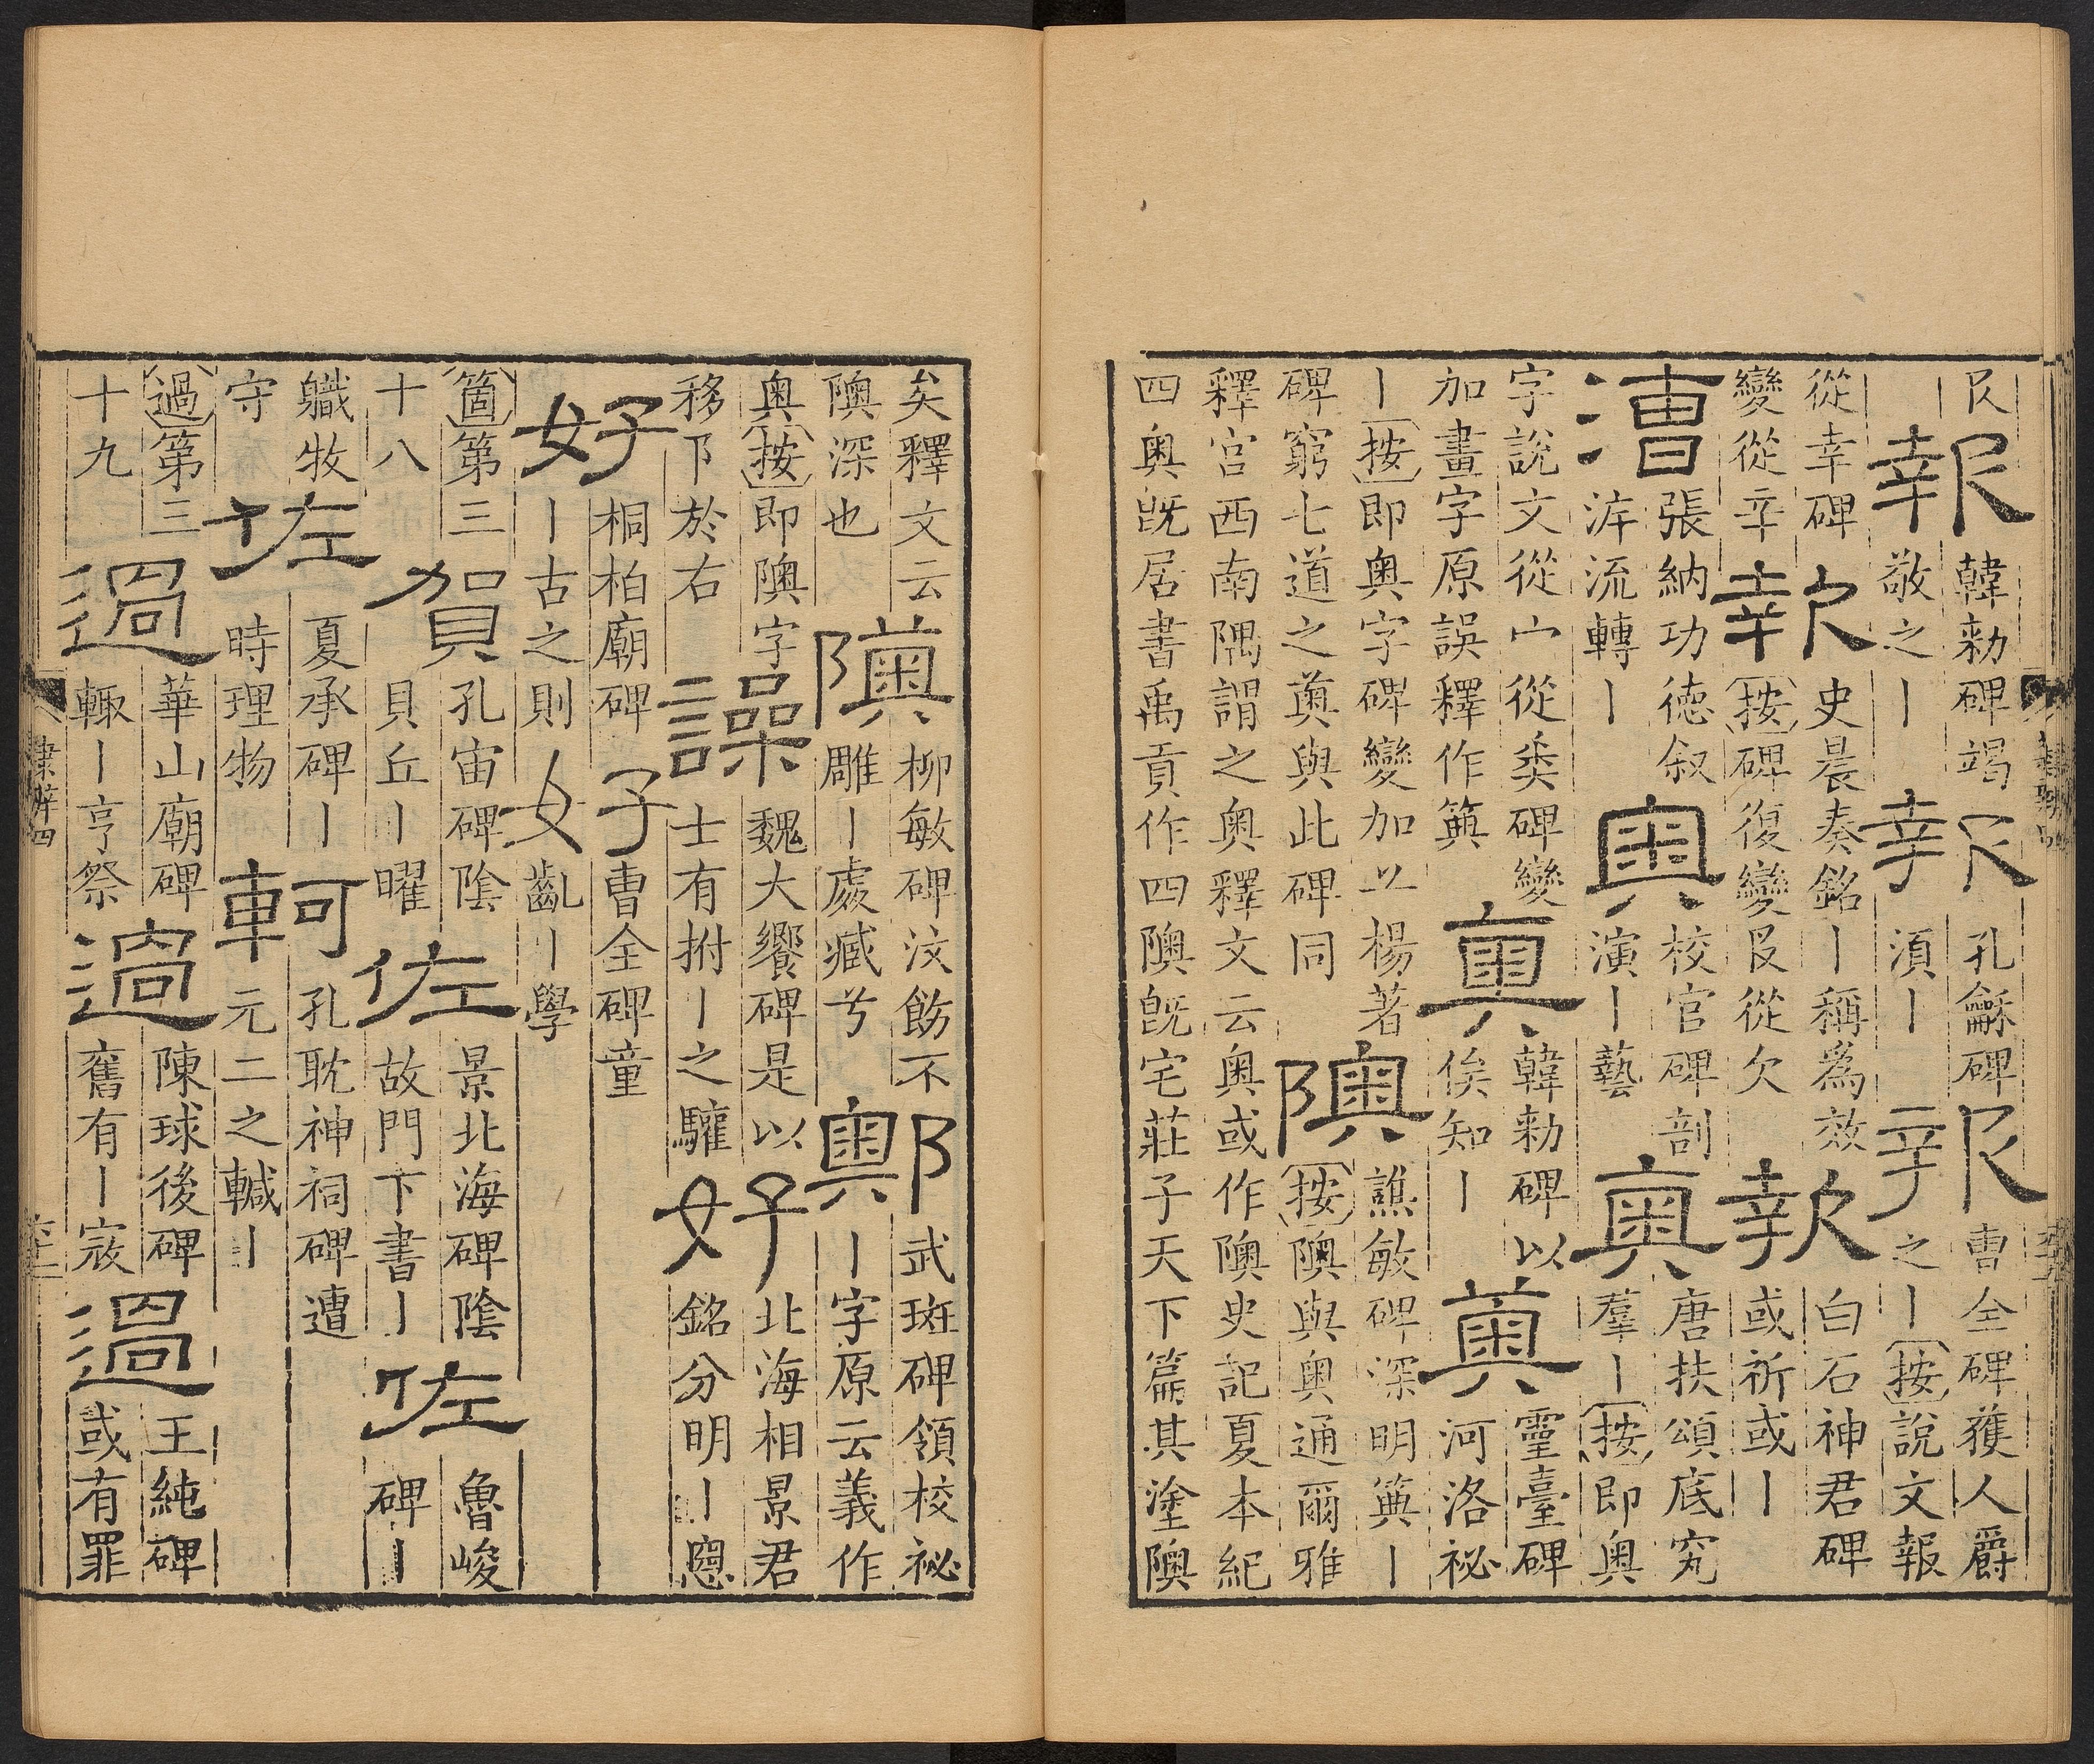 㞋丨報韓勑碑竭敬之丨報孔龢碑湏丨報曹全碑獲人爵之丨按說文報
從幸碑變從䇂報史晨奏銘丨稱爲效按碑復變㞋從欠報白石神君碑或祈或丨
漕張納功徳叙泝流轉丨奧校官碑剖演丨藝奧唐扶頌底究羣丨按即奧
字說文從宀從𢍏碑變加畫字原誤釋作䉛奧韓勑碑以俟知丨奧靈臺碑河洛祕
丨按即奧字碑變加䒑楊著碑窮七道之奧與此碑同隩譙敏碑深明䉛丨按隩與奧通爾雅
釋宮西南隅謂之奧釋文云奧或作隩史記夏本紀
四奧旣居書禹貢作四隩旣宅莊子天下篇其塗隩
隸辨四
矣釋文云隩深也隩柳敏碑汶飭不雕丨處臧兮隩武斑碑領校祕丨字原云義作
奧按即隩字移阝於右譟魏大饗碑是以士有拊丨之驩好北海相景君銘分明丨惡
好桐柏廟碑丨古之則好曹全碑童齔丨學
箇第三十八賀孔宙碑陰貝丘丨曜佐景北海碑陰故門下書丨佐魯峻碑丨
軄牧守佐夏承碑丨時理物軻孔耽神祠碑遭元二之轗丨
過第三十九過華山廟碑輙丨亨祭過陳球後碑舊有丨寇過王純碑或有罪
隸辨四